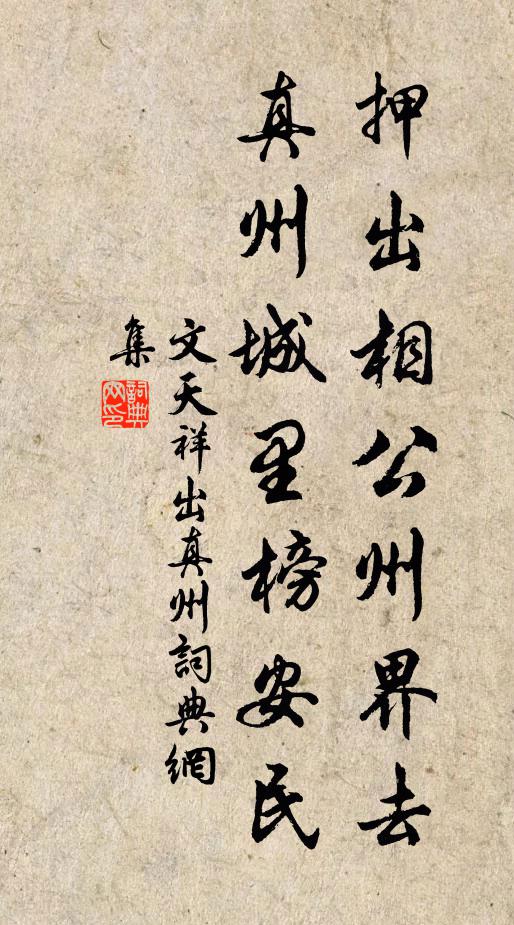 押出相公州界去
真州城里榜安民
文天祥出真州詞典網
集
詞典網印